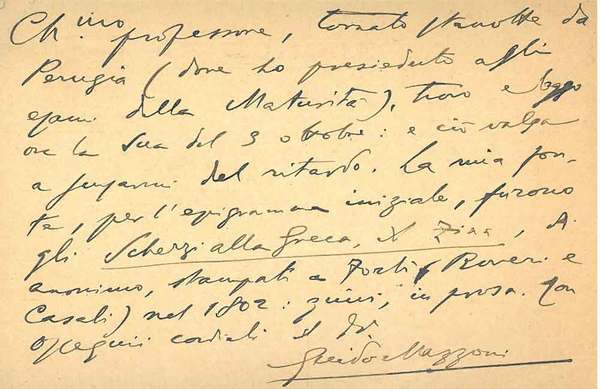 Ch.mo professore, tornato stanotte da
Perugia (dove ho presieduto agli
esami della Maturità), trovo e leggo
ora la Sua del 3 ottobre: e ciò valga
a scusarmi del ritardo. La mia fon-
te, per l'epigramma iniziale, furono
gli Scherzi alla Greca, di
anonimo, stampati a Forlì (Roveri e
Casali) nel 1802: in prosa. Con
ossequi cordiali il dv.
Guido Mazzoni